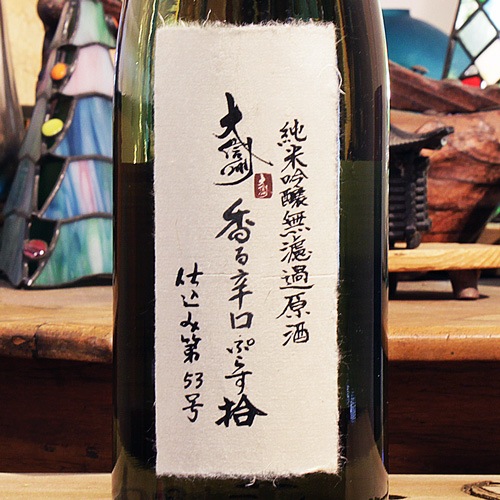 純米吟醸無濾過原酒
大信州
大信州
香る辛口ぷらす拾
仕込み第53号